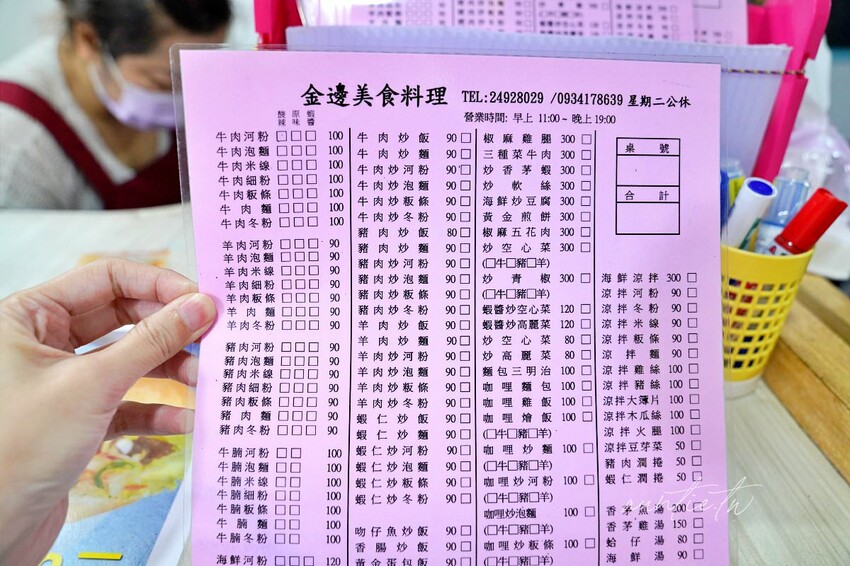 金邊美食料理 TEL:24928029 /0934178639 星期二公休
營業時間: 早上 11:00~ 晚上 19:00
酸辣 原味 蝦醬
牛肉河粉 □□□ 100
牛肉泡麵 □□□ 100
牛肉米線 □□□ 100
牛肉細粉 □□□ 100
牛肉粄條 □□□ 100
牛肉麵 □□□ 100
牛肉冬粉 □□□ 100
羊肉河粉 □□□ 90
羊肉泡麵 □□□ 90
羊肉米線 □□□ 90
羊肉細粉 □□□ 90
羊肉粄條 □□□ 90
羊肉麵 □□□ 90
羊肉冬粉 □□□ 90
豬肉河粉 □□□ 90
豬肉泡麵 □□□ 90
豬肉米線 □□□ 90
豬肉細粉 □□□ 90
豬肉粄條 □□□ 90
豬肉麵 □□□ 90
豬肉冬粉 □□□ 90
牛腩河粉 □□ 100
牛腩泡麵 □□ 100
牛腩米線 □□ 100
牛腩細粉 □□ 100
牛腩粄條 □□ 100
牛腩麵 □□ 100
牛腩冬粉 □□ 100
海鮮河粉 □□□ 120
牛肉炒飯 90 □
牛肉炒麵 90 □
牛肉炒河粉 90 □
牛肉炒泡麵 90 □
牛肉炒粄條 90 □
牛肉炒冬粉 90 □
豬肉炒飯 80 □
豬肉炒麵 90 □
豬肉炒河粉 90 □
豬肉炒泡麵 90 □
豬肉炒粄條 90 □
豬肉炒冬粉 90 □
羊肉炒飯 90 □
羊肉炒麵 90 □
羊肉炒河粉 90 □
羊肉炒泡麵 90 □
羊肉炒粄條 90 □
羊肉炒冬粉 90 □
蝦仁炒飯 90 □
蝦仁炒麵 90 □
蝦仁炒河粉 90 □
蝦仁炒泡麵 90 □
蝦仁炒粄條 90 □
蝦仁炒冬粉 90 □
吻仔魚炒飯 90 □
香腸炒飯 90 □
黃金蛋包飯
椒麻雞腿 300 □
三種菜牛肉 300 □
炒香茅蝦 300 □
炒軟絲 300 □
海鮮炒豆腐 300 □
黃金煎餅 300 □
椒麻五花肉 300 □
炒空心菜 300 □
(□牛□豬□羊)
炒青椒 300 □
(□牛□豬□羊)
蝦醬炒空心菜 120 □
蝦醬炒高麗菜 120 □
炒空心菜 80 □
炒高麗菜 80 □
麵包三明治 100 □
咖哩麵包 100 □
咖哩雞飯 100 □
咖哩燴飯 100 □
(□牛□豬□羊)
咖哩炒麵 100 □
(□牛□豬□羊)
咖哩炒河粉 100 □
(□牛□豬□羊)
咖哩炒泡麵 100 □
(□牛□豬□羊)
咖哩炒粄條 100 □
桌號
合計
海鮮涼拌 300 □
涼拌河粉 90 □
涼拌冬粉 90 □
涼拌米線 90 □
涼拌粄條 90 □
涼拌麵 90 □
涼拌雞絲 100 □
涼拌豬絲 100 □
涼拌大薄片 100 □
涼拌木瓜絲 100 □
涼拌火腿 100 □
涼拌豆芽菜 50 □
豬肉潤捲 50 □
蝦仁潤捲 50 □
香茅魚湯 200 □
香茅雞湯 150 □
蛤仔湯 80 □
海鮮湯 90 □